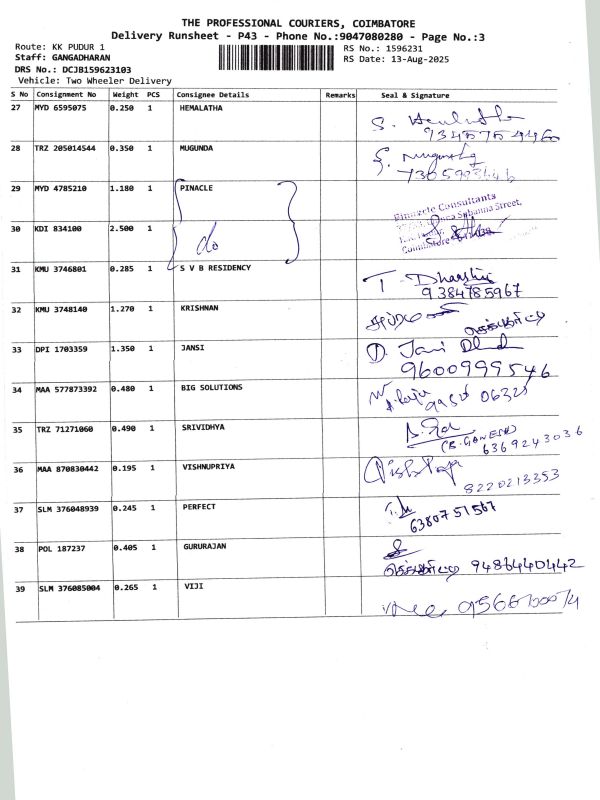 THE PROFESSIONAL COURIERS, COIMBATORE
Delivery Runsheet - P43 - Phone No.:9047080280 - Page No.:3
Route: KK PUDUR 1
RS No.: 1596231
Staff: GANGADHARAN
RS Date: 13-Aug-2025
DRS No.: DCJB159623103
Vehicle: Two Wheeler Delivery
S No Consignment No Weight PCS Consignee Details Remarks Seal & Signature
27 MYD 6595075 0.250 1 HEMALATHA
S. Hemalatha
28 TRZ 205014544 0.350 1 MUGUNDA
29 MYD 4785210 1.180 1 PINACLE
Pinnacle Consultants
30 KDI 834100 2.500 1 do
31 KMU 3746801 0.285 1 S V B RESIDENCY
T. Dharshini
9384785967
32 KMU 3748140 1.270 1 KRISHNAN
33 DPI 1703359 1.350 1 JANSI
9600999546
34 MAA 577873392 0.480 1 BIG SOLUTIONS
35 TRZ 71271060 0.490 1 SRIVIDHYA
(B. GANESH)
6369243036
36 MAA 870830442 0.195 1 VISHNUPRIYA
8220213353
37 SLM 376048939 0.245 1 PERFECT
6380751567
38 POL 187237 0.405 1 GURURAJAN
9486440442
39 SLM 376085004 0.265 1 VIJI